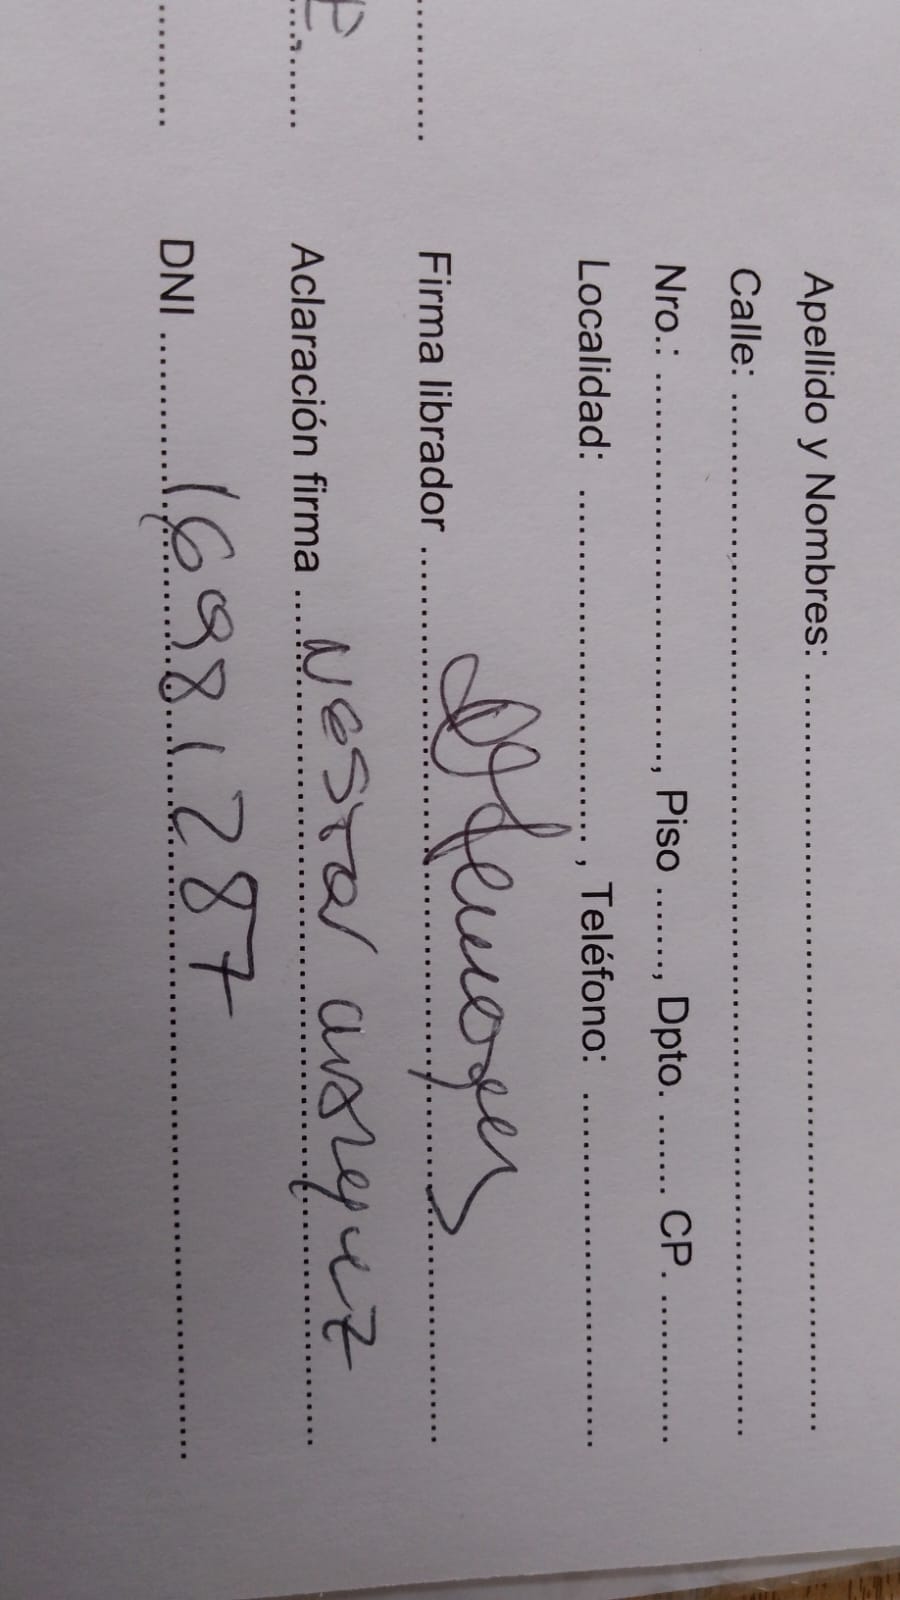 Apellido y Nombres: ..........
Calle: ..........
Nro.: .........., Piso ......, Dpto. ....... CP. ..........
Localidad: .........., Teléfono: ..........
Firma librador ..........
Aclaración firma .......... Nestor
DNI .......... 16981287